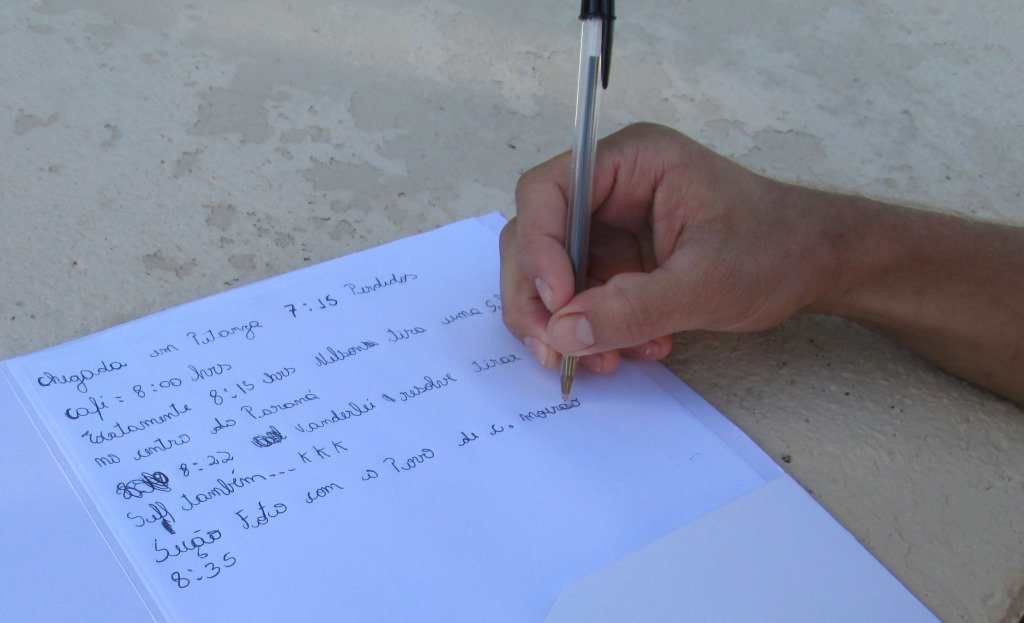 chegada em Pitanga 7:15 Perdidos
café = 8:00 hrs
Edatamente 8:15 hrs Nelson tira uma S
no centro do Paraná
8:22 Vanderlei resolve tirar
Self também... KKK
Seção Foto com o Povo de c. mourão
8:35